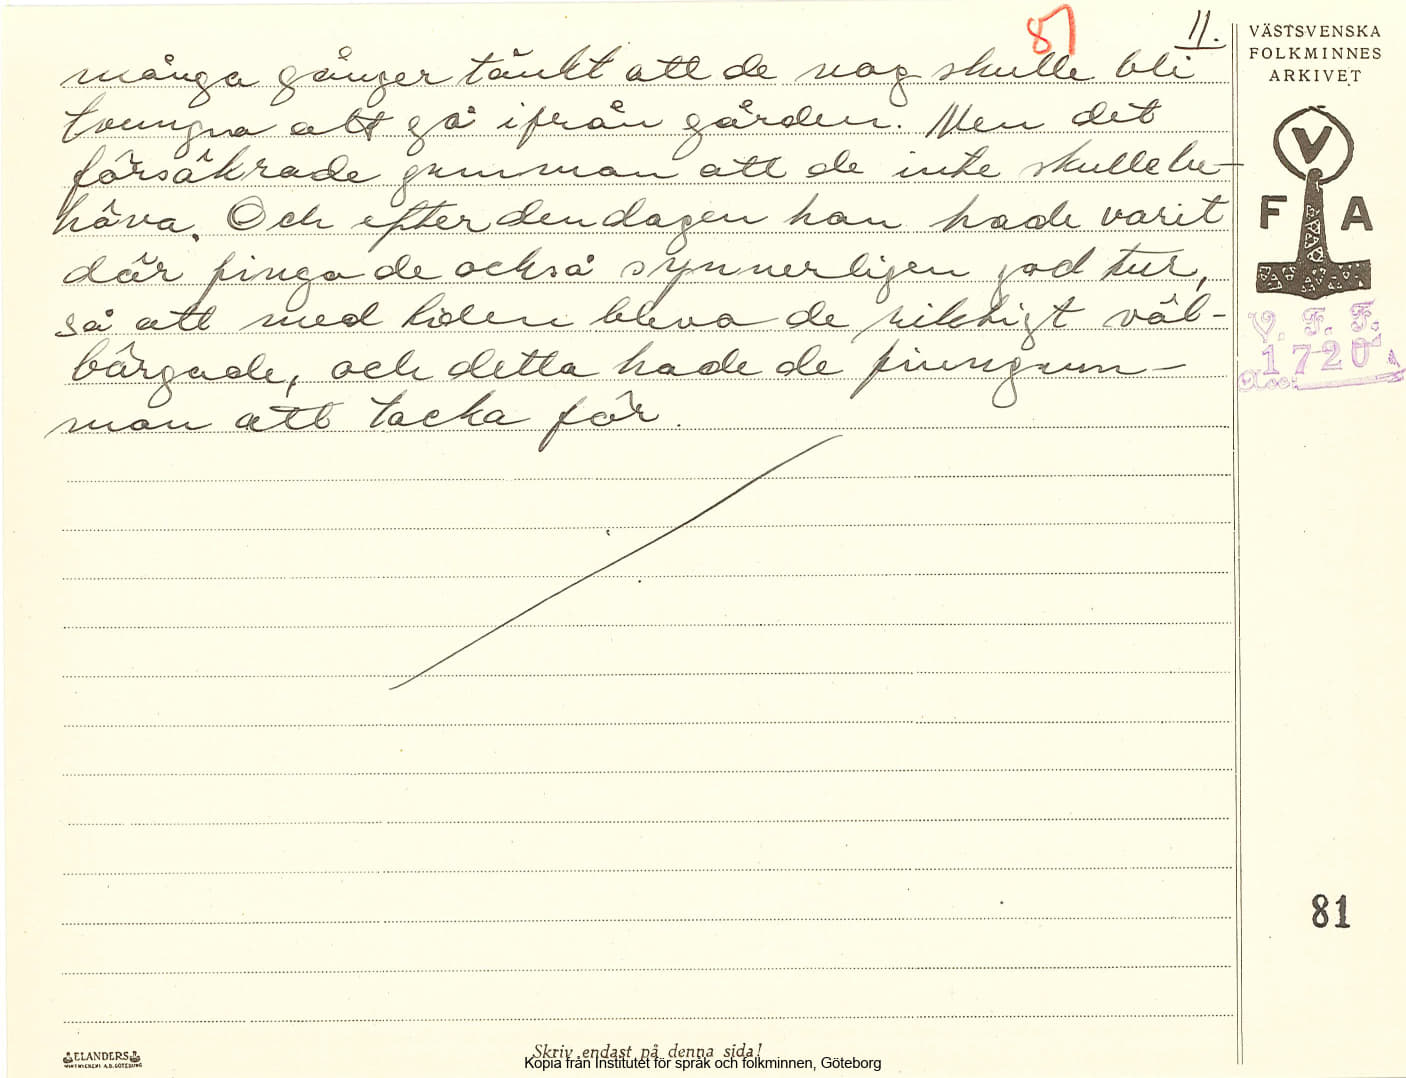 87
11.
många gånger tänkt att de nog skulle bli
tvungna att gå ifrån gården. Men det
försäkrade gumman att de inte skulle be-
höva. Och efter den dagen han hade varit
där fingo de också synnerligen god tur,
så att med tiden bleva de riktigt väl-
bärgade, och detta hade de finngum-
man att tacka för.
VÄSTSVENSKA
FOLKMINNES
ARKIVET
V
F A
V. F. F.
1720
81
ELANDERS
Skriv endast på denna sida!
Kopia från Institutet för språk och folkminnen, Göteborg